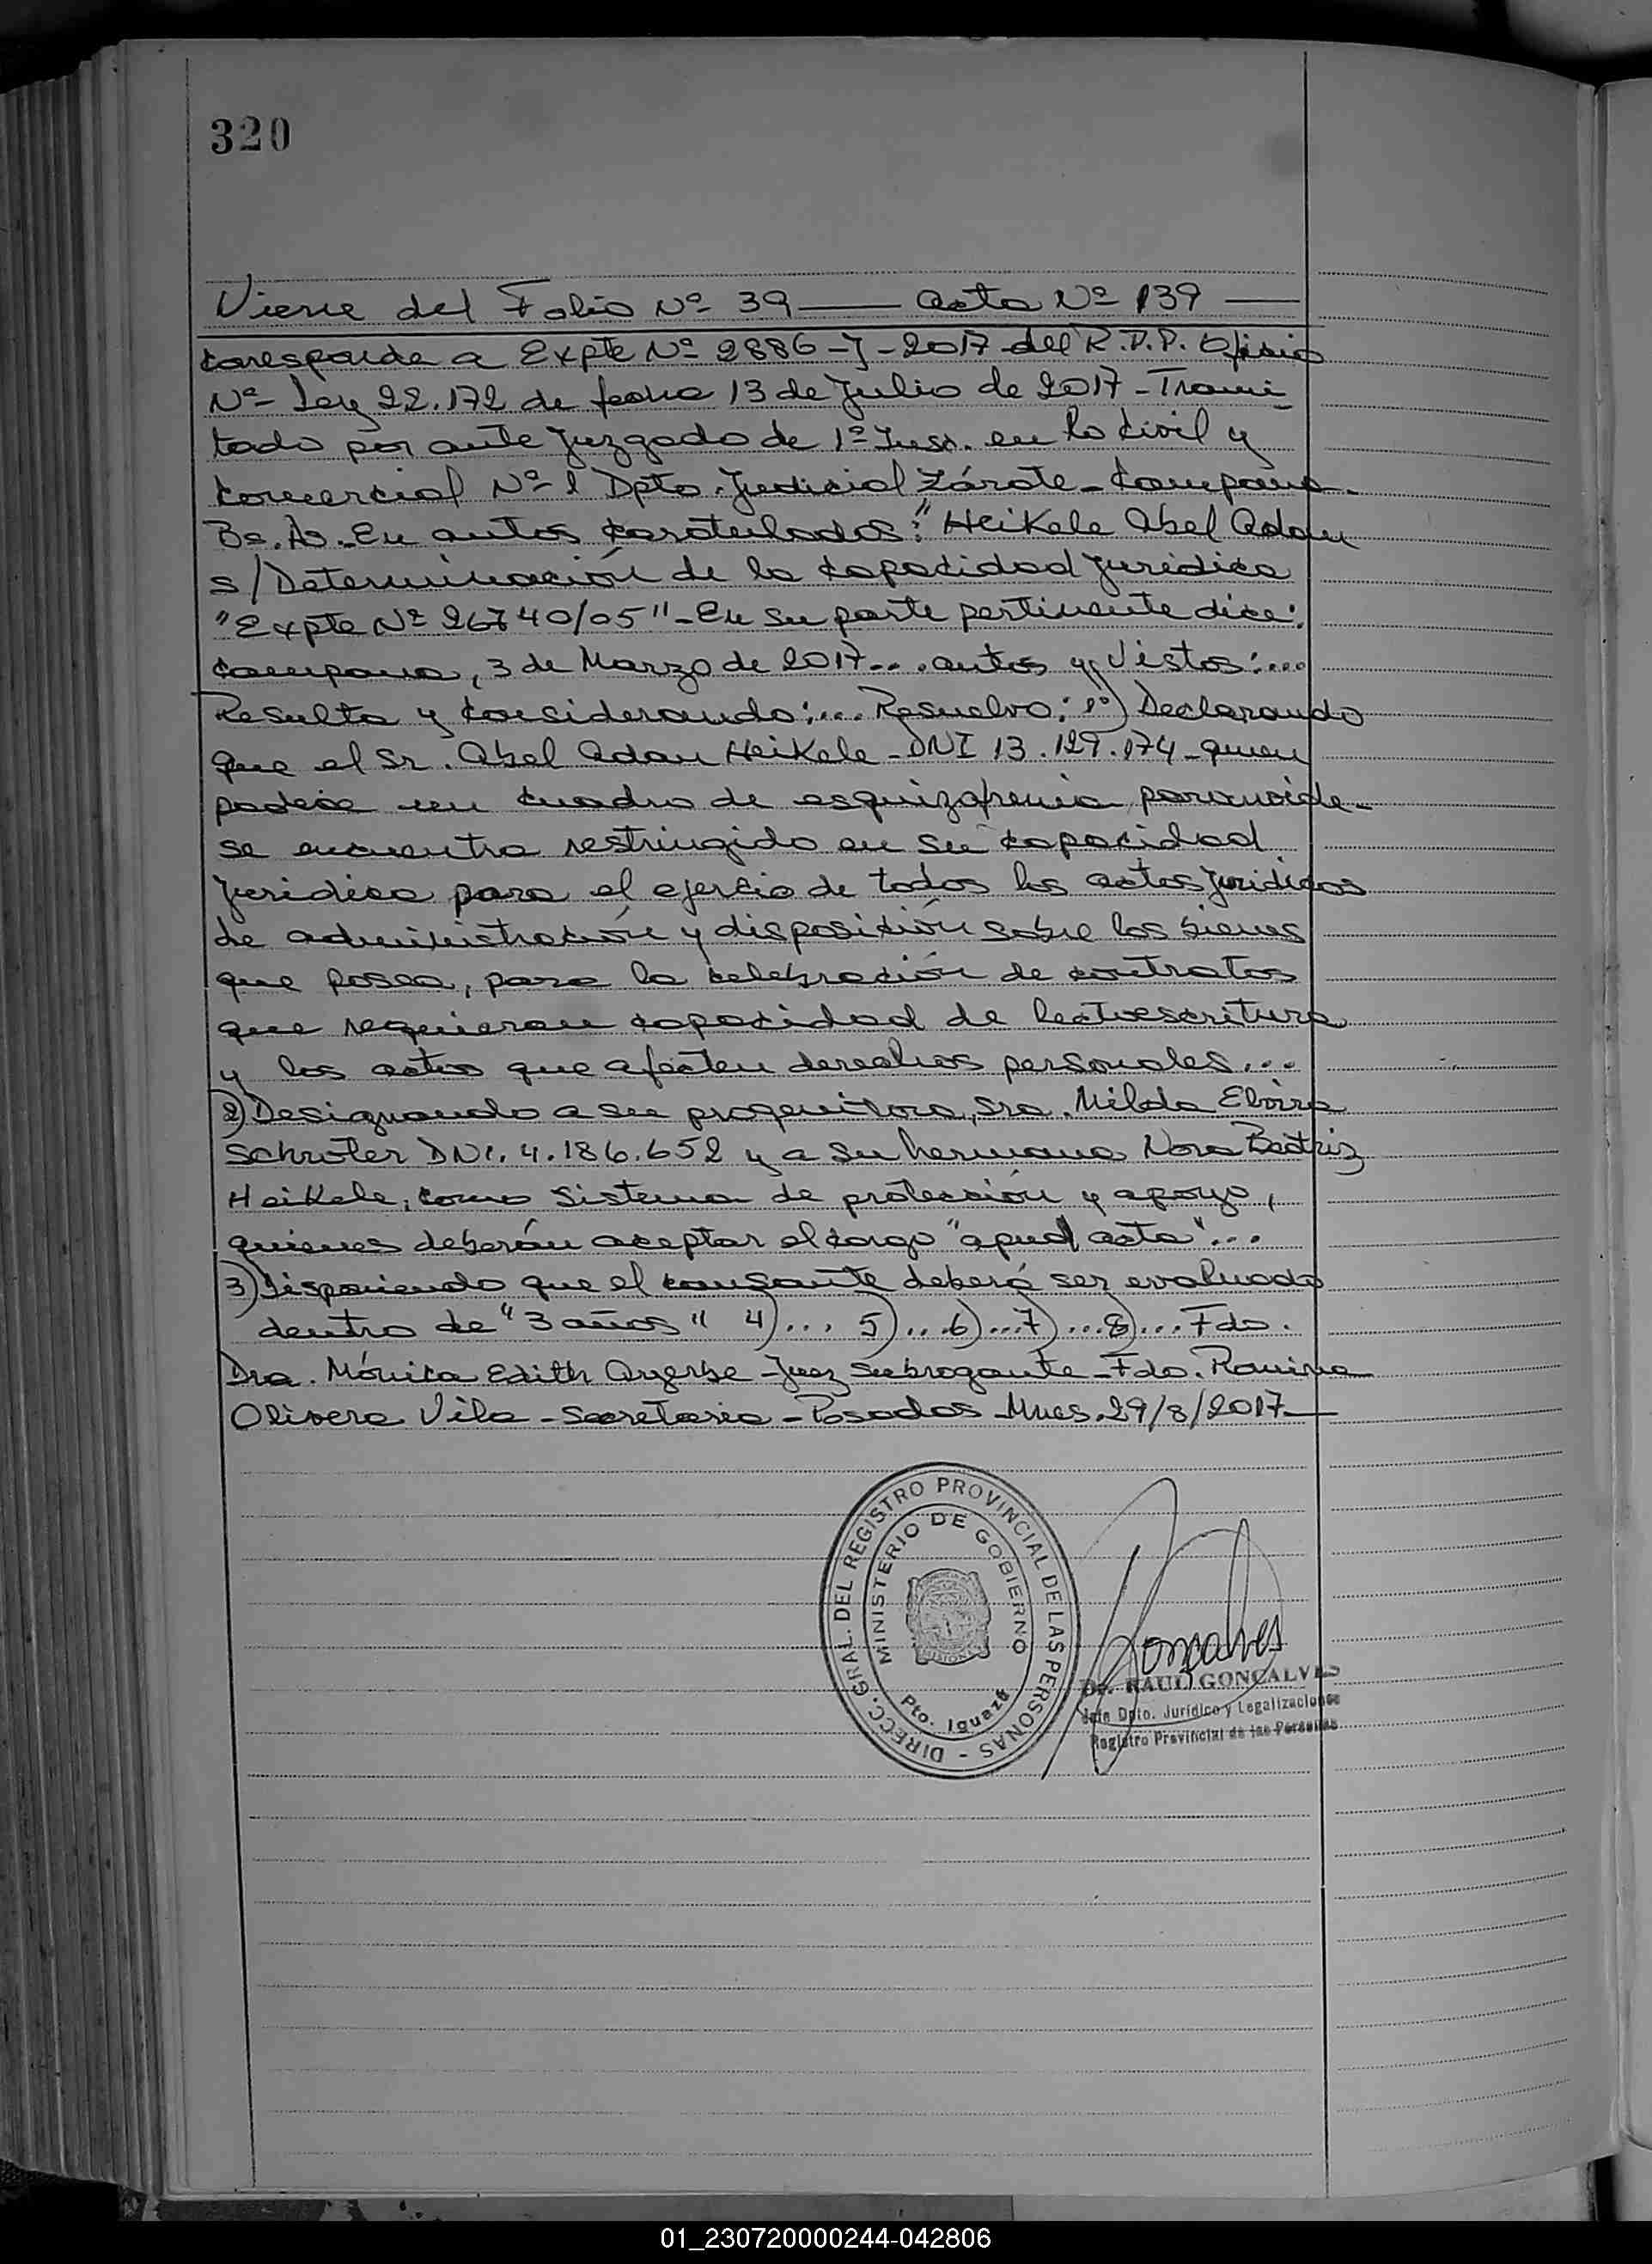 320
Viene del Folio Nº 39 —— acta Nº 139 ——
Corresponde a Expte Nº 2886-J-2017 del R.P.P. Oficio
Nº- Ley 22.172 de fecha 13 de Julio de 2017 - Trami
tado por ante Juzgado de 1º Inst. en lo Civil y
Comercial Nº 1 Dpto. Judicial Zárate - Campana.
Bs. As. En autos caratulados: "Heikele Abel Adan
s/ Determinación de la capacidad Jurídica
"Expte Nº 26740/05" - En su parte pertinente dice:
Campana, 3 de Marzo de 2017... autos y Vistos:...
Resulta y Considerando:... Resuelvo: 1º) Declarando
que el Sr. Abel Adan Heikele - DNI 13.129.174 - quien
padece un cuadro de esquizofrenia paranoide -
se encuentra restringido en su capacidad
Jurídica para el ejercio de todos los actos jurídicos
de administración y disposición sobre los bienes
que posea, para la celebración de contratos
que requieran capacidad de lectoescritura
y los actos que afecten derechos personales...
2) Designando a su progenitora, Sra. Milda Elvira
Schroter DNI. 4.186.652 y a su hermana Nora Beatriz
Heikele, como sistema de protección y apoyo,
quienes deberán aceptar el cargo "apud acta"...
3) Disponiendo que el causante deberá ser evaluado
dentro de "3 años" 4)... 5)...6)...7)...8)... Fdo.
Dra. Mónica Edith Ayerbe - Juez Subrogante - Fdo. Romina
Olivera Vila - Secretaria - Posadas - Mnes. 29/8/2017 —
DIRECC. GRAL. DEL REGISTRO PROVINCIAL DE LAS PERSONAS -
MINISTERIO DE GOBIERNO
MISIONES
Pto. Iguazú
Goncalves
Dr. RAUL GONCALVES
Jefe Dpto. Jurídico y Legalizaciones
Registro Provincial de las Personas
01_230720000244-042806